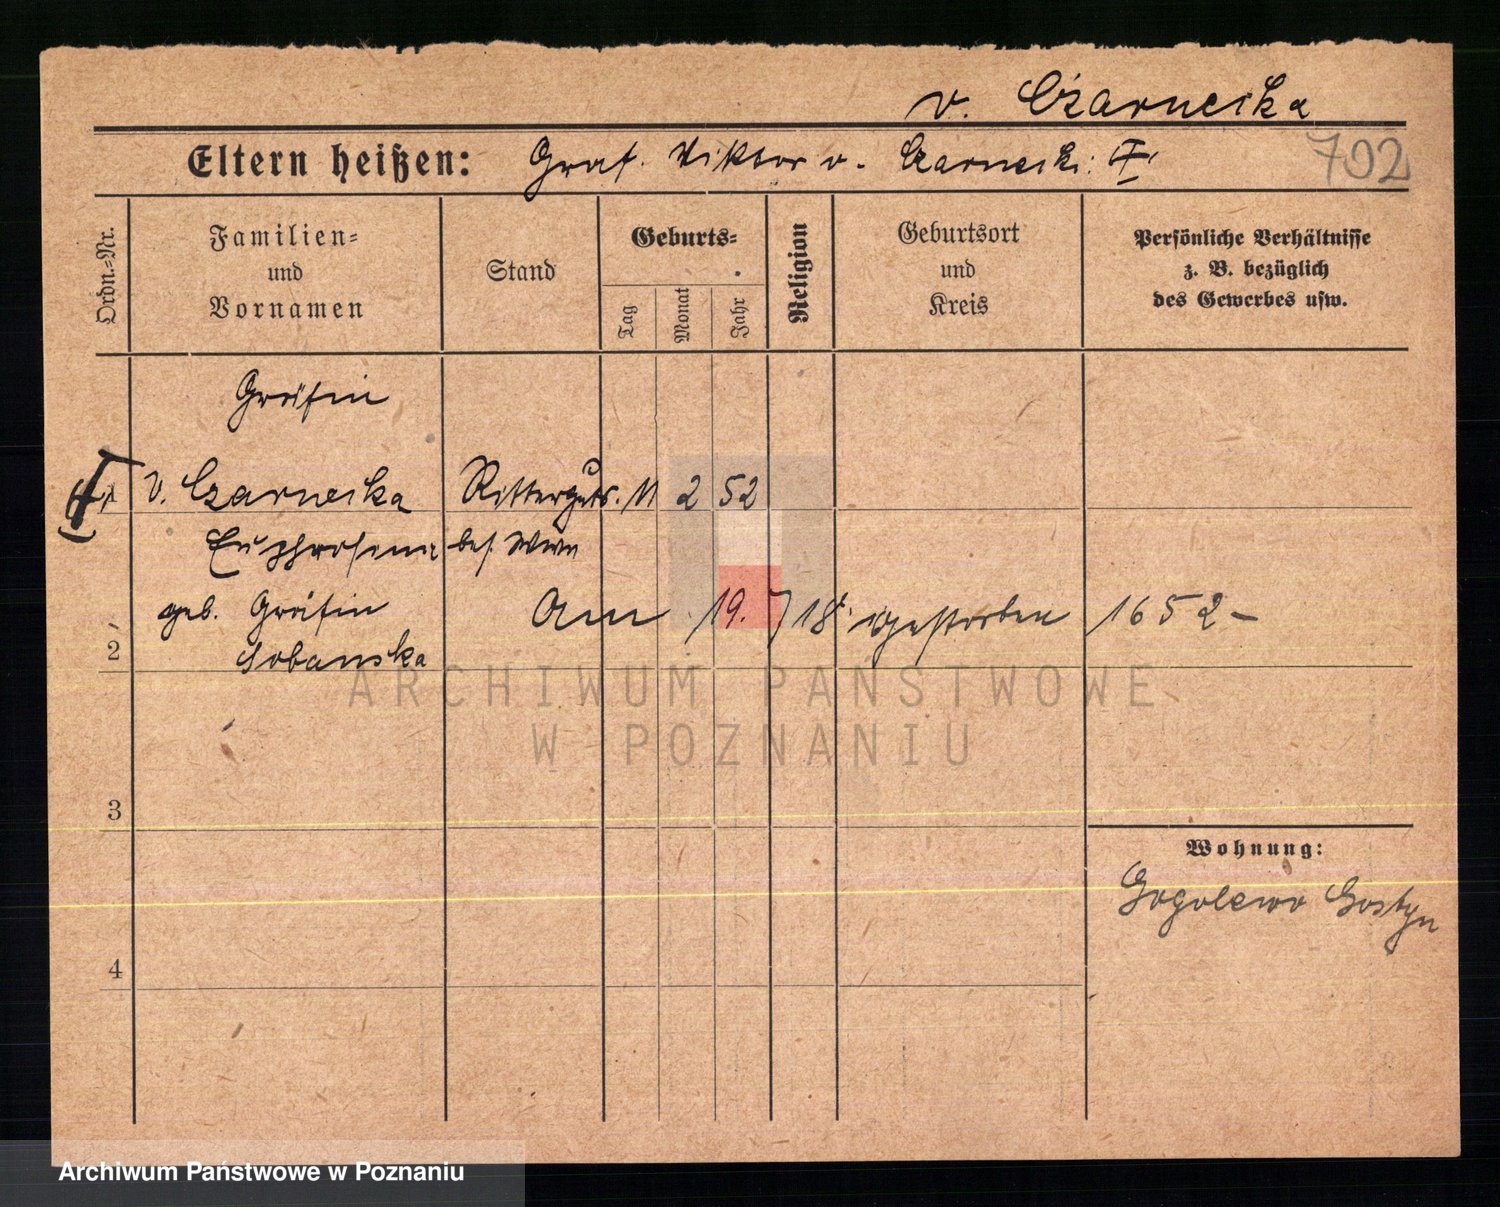 v. Czarnecka
Eltern heißen: Graf. Viktor v. Czarnecki. †
702
Ordn.=Nr.
Familien=
und
Vornamen
Stand
Geburts=
Tag
Monat
Jahr
Religion
Geburtsort
und
Kreis
Persönliche Verhältnisse
z. B. bezüglich
des Gewerbes usw.
Gräfin
1 v. Czarnecka Ritterguts. 11 2 52
Euphrosina bes. Wwe
geb. Gräfin Am 19. 7 18. gestorben 1652 -
2 Sobanska
ARCHIWUM PAŃSTWOWE
W POZNANIU
3
Wohnung:
Gogolewo Gostyn
4
Archiwum Państwowe w Poznaniu